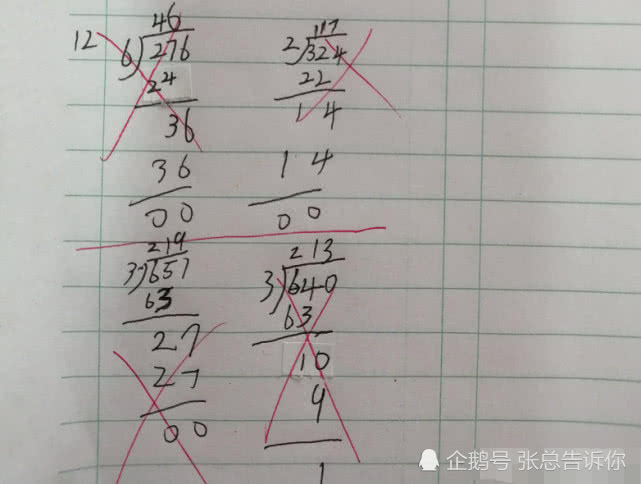 12
46
6)276
24
36
36
00
117
2)324
22
14
14
00
219
3)657
63
27
27
00
213
3)640
63
10
9
1
企鹅号 张总告诉你